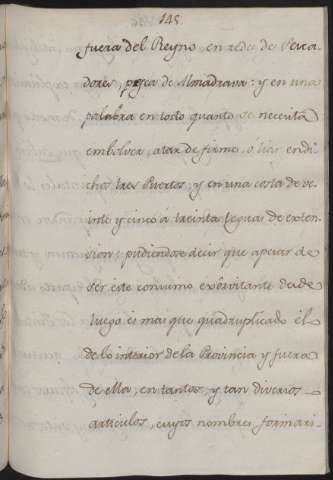 145.
fuera del Reyno en redes de Pesca
dores, pesca de Almadrava: y en una
palabra en todo quanto se necesita
embolver, atar de firme, ó lias en di
chos tres Puertos, y en una costa de ve
inte y cinco á treinta leguas de exten
sion; pudiendose decir que apesar de
ser este consumo exôrvitante desde
luego es mas que quadruplicado él
de lo interior de la Provincia y fuera
de ella, en tantos, y tan diversos
articulos, cuyos nombres formari-